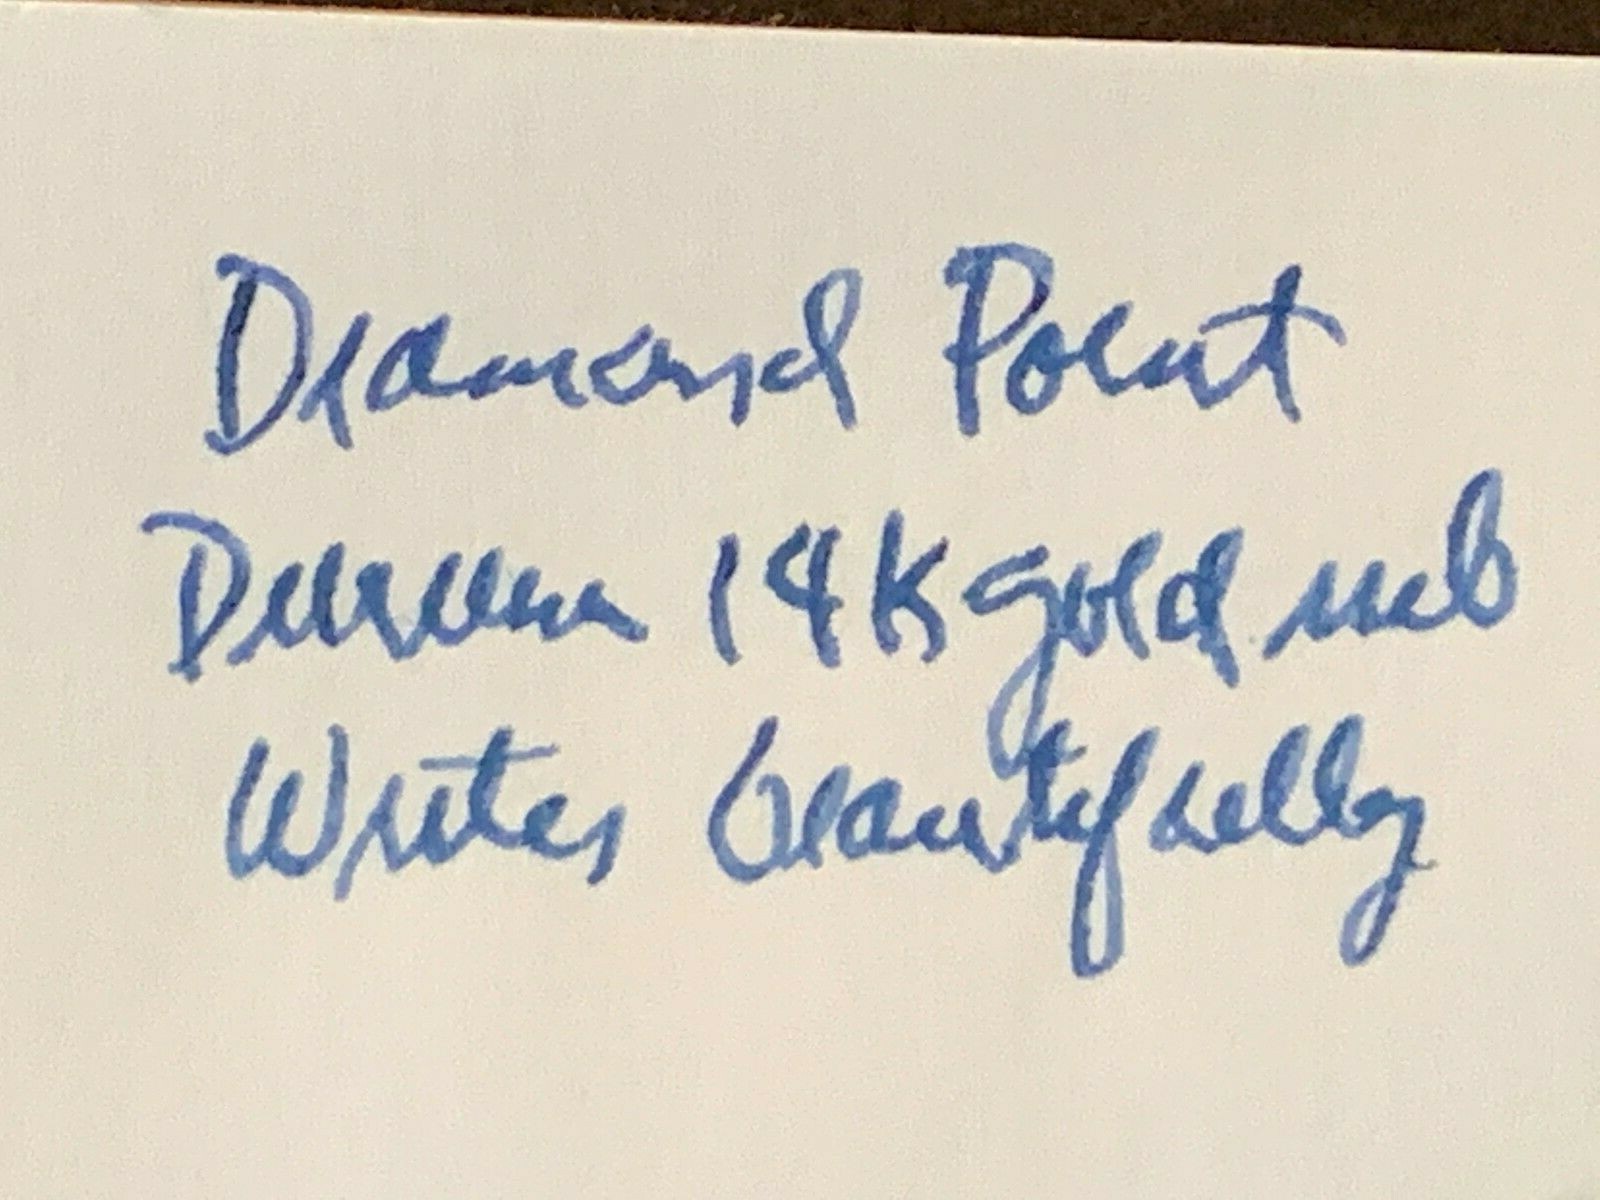 Diamond Point
14K gold nib
Writes beautifully